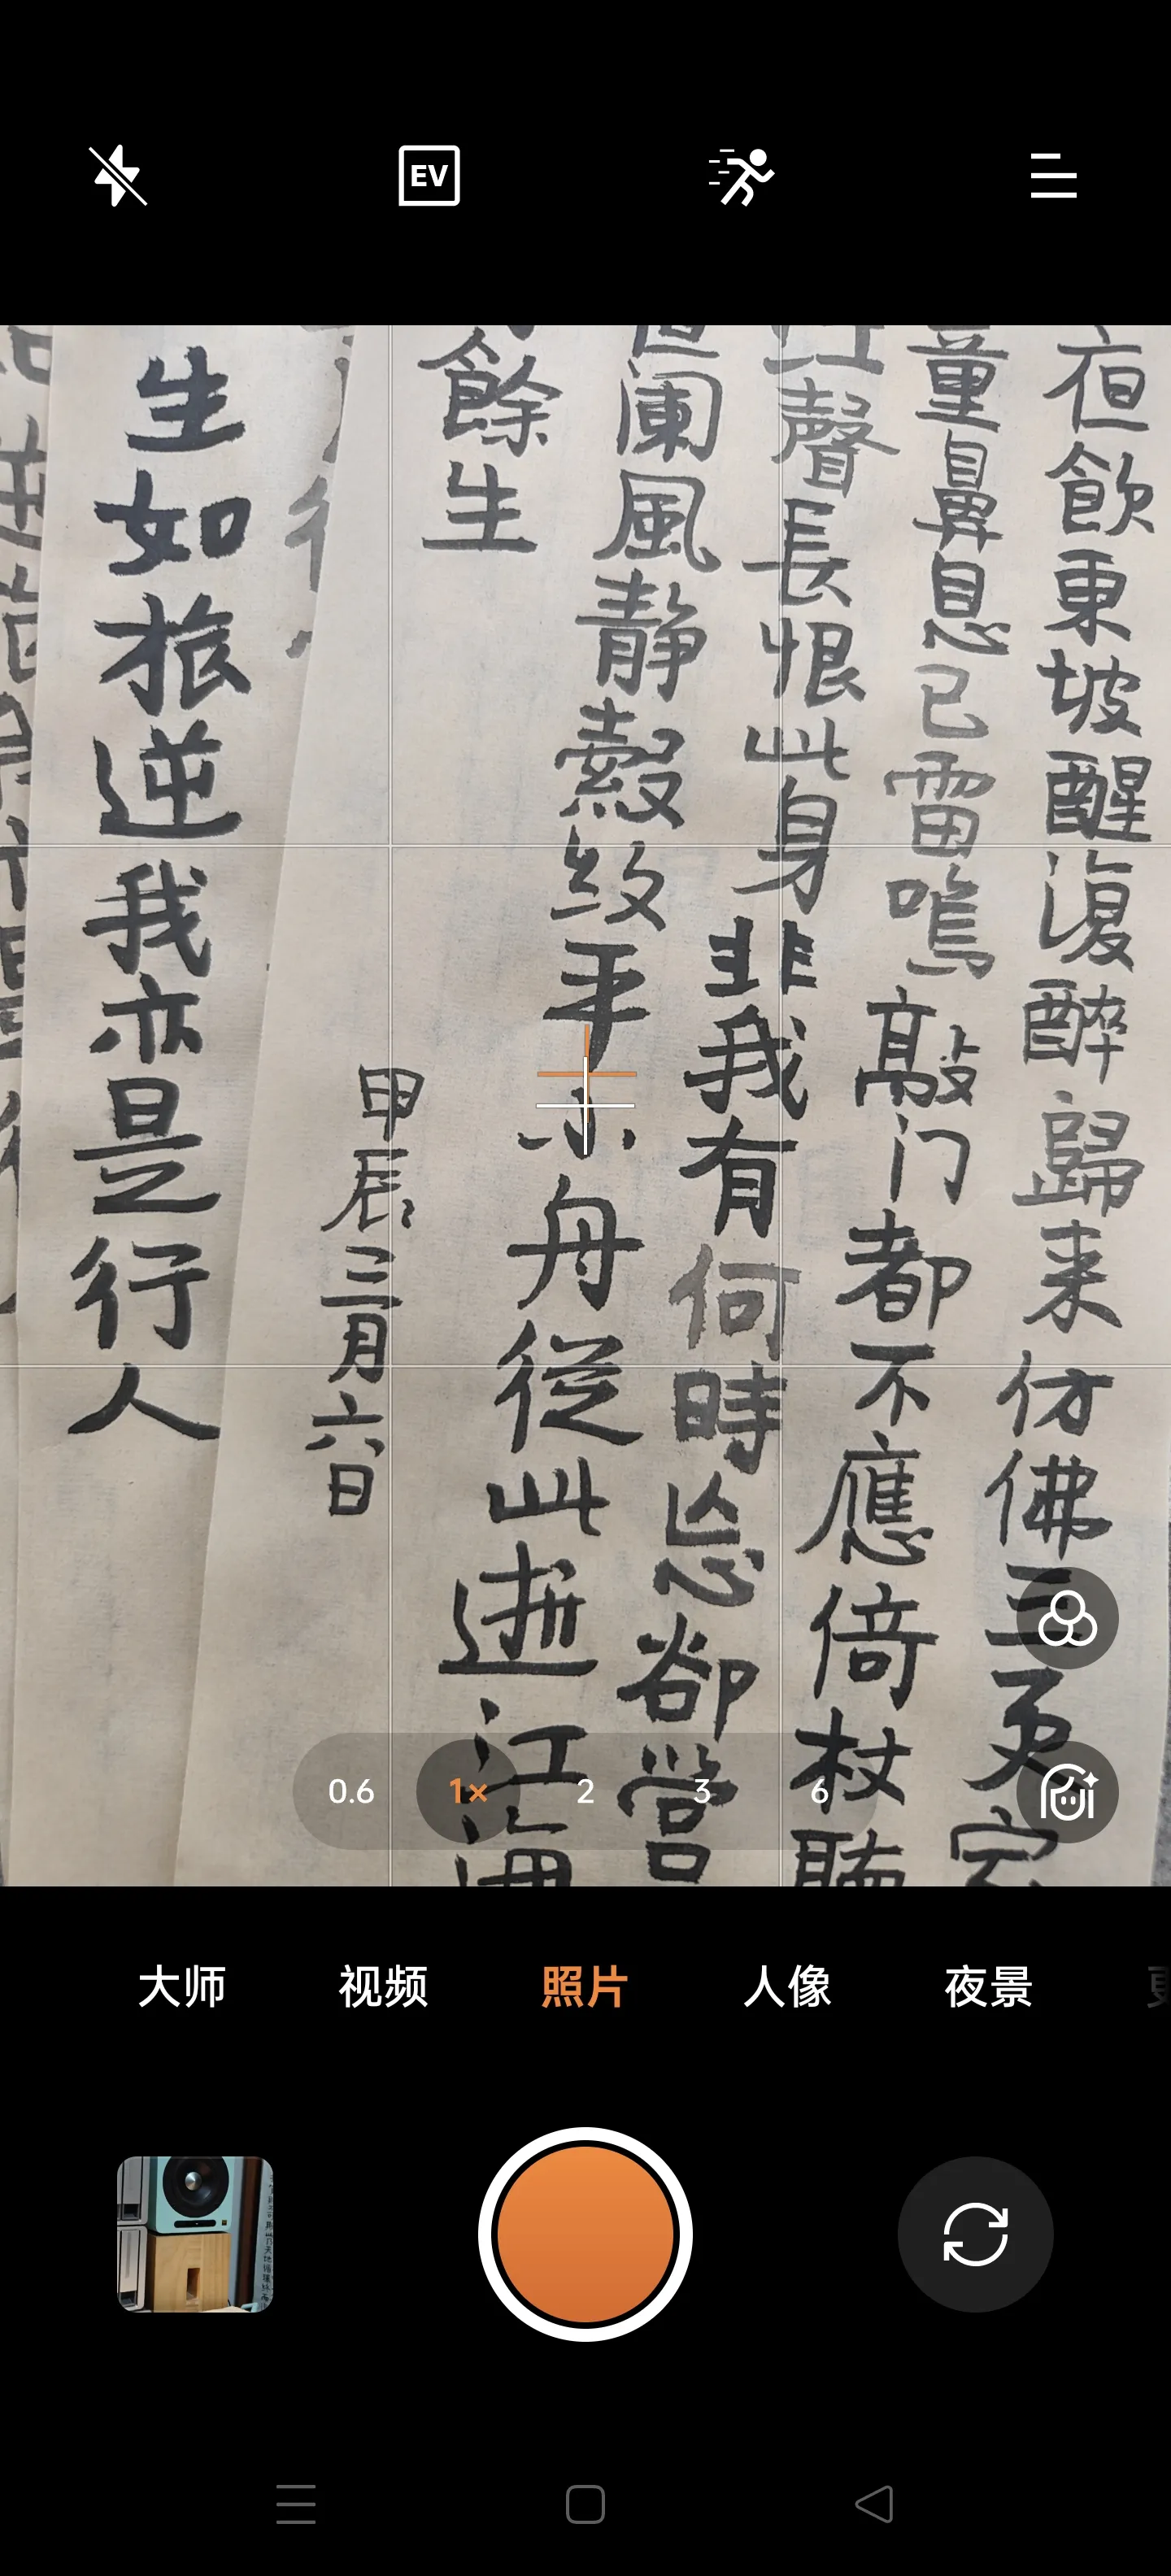 EV
夜飲東坡醒復醉歸来仿佛三更家
童鼻息已雷鳴敲门都不應倚杖聽
江聲長恨此身非我有何時忘卻營
夜闌風静縠紋平小舟從此逝江海
餘生
甲辰三月六日
生如旅逆我亦是行人
0.6 1× 2 3 6
大师 视频 照片 人像 夜景